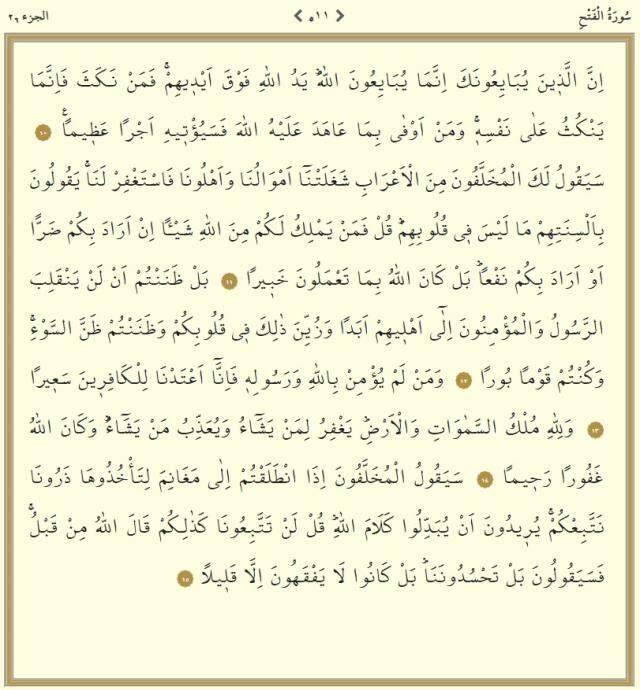 سُورَةُ الْفَتْحِ ٥١١ الجزء ٢٦
اِنَّ الَّذ۪ينَ يُبَايِعُونَكَ اِنَّمَا يُبَايِعُونَ اللّٰهَۜ يَدُ اللّٰهِ فَوْقَ اَيْد۪يهِمْۚ فَمَنْ نَكَثَ فَاِنَّمَا
يَنْكُثُ عَلٰى نَفْسِه۪ۚ وَمَنْ اَوْفٰى بِمَا عَاهَدَ عَلَيْهُ اللّٰهَ فَسَيُؤْت۪يهِ اَجْرًا عَظ۪يمًا۟ ١٠
سَيَقُولُ لَكَ الْمُخَلَّفُونَ مِنَ الْاَعْرَابِ شَغَلَتْنَٓا اَمْوَالُنَا وَاَهْلُونَا فَاسْتَغْفِرْ لَنَاۚ يَقُولُونَ
بِاَلْسِنَتِهِمْ مَا لَيْسَ ف۪ي قُلُوبِهِمْۜ قُلْ فَمَنْ يَمْلِكُ لَكُمْ مِنَ اللّٰهِ شَيْـًٔا اِنْ اَرَادَ بِكُمْ ضَرًّا
اَوْ اَرَادَ بِكُمْ نَفْعًاۜ بَلْ كَانَ اللّٰهُ بِمَا تَعْمَلُونَ خَب۪يرًا ١١ بَلْ ظَنَنْتُمْ اَنْ لَنْ يَنْقَلِبَ
الرَّسُولُ وَالْمُؤْمِنُونَ اِلٰٓى اَهْل۪يهِمْ اَبَدًا وَزُيِّنَ ذٰلِكَ ف۪ي قُلُوبِكُمْ وَظَنَنْتُمْ ظَنَّ السَّوْءِۚ
وَكُنْتُمْ قَوْمًا بُورًا ١٢ وَمَنْ لَمْ يُؤْمِنْ بِاللّٰهِ وَرَسُولِه۪ فَاِنَّٓا اَعْتَدْنَا لِلْكَافِر۪ينَ سَع۪يرًا
١٣ وَلِلّٰهِ مُلْكُ السَّمٰوَاتِ وَالْاَرْضِۜ يَغْفِرُ لِمَنْ يَشَٓاءُ وَيُعَذِّبُ مَنْ يَشَٓاءُۜ وَكَانَ اللّٰهُ
غَفُورًا رَح۪يمًا ١٤ سَيَقُولُ الْمُخَلَّفُونَ اِذَا انْطَلَقْتُمْ اِلٰى مَغَانِمَ لِتَأْخُذُوهَا ذَرُونَا
نَتَّبِعْكُمْۚ يُر۪يدُونَ اَنْ يُبَدِّلُوا كَلَامَ اللّٰهِۜ قُلْ لَنْ تَتَّبِعُونَا كَذٰلِكُمْ قَالَ اللّٰهُ مِنْ قَبْلُۚ
فَسَيَقُولُونَ بَلْ تَحْسُدُونَنَاۜ بَلْ كَانُوا لَا يَفْقَهُونَ اِلَّا قَل۪يلًا ١٥